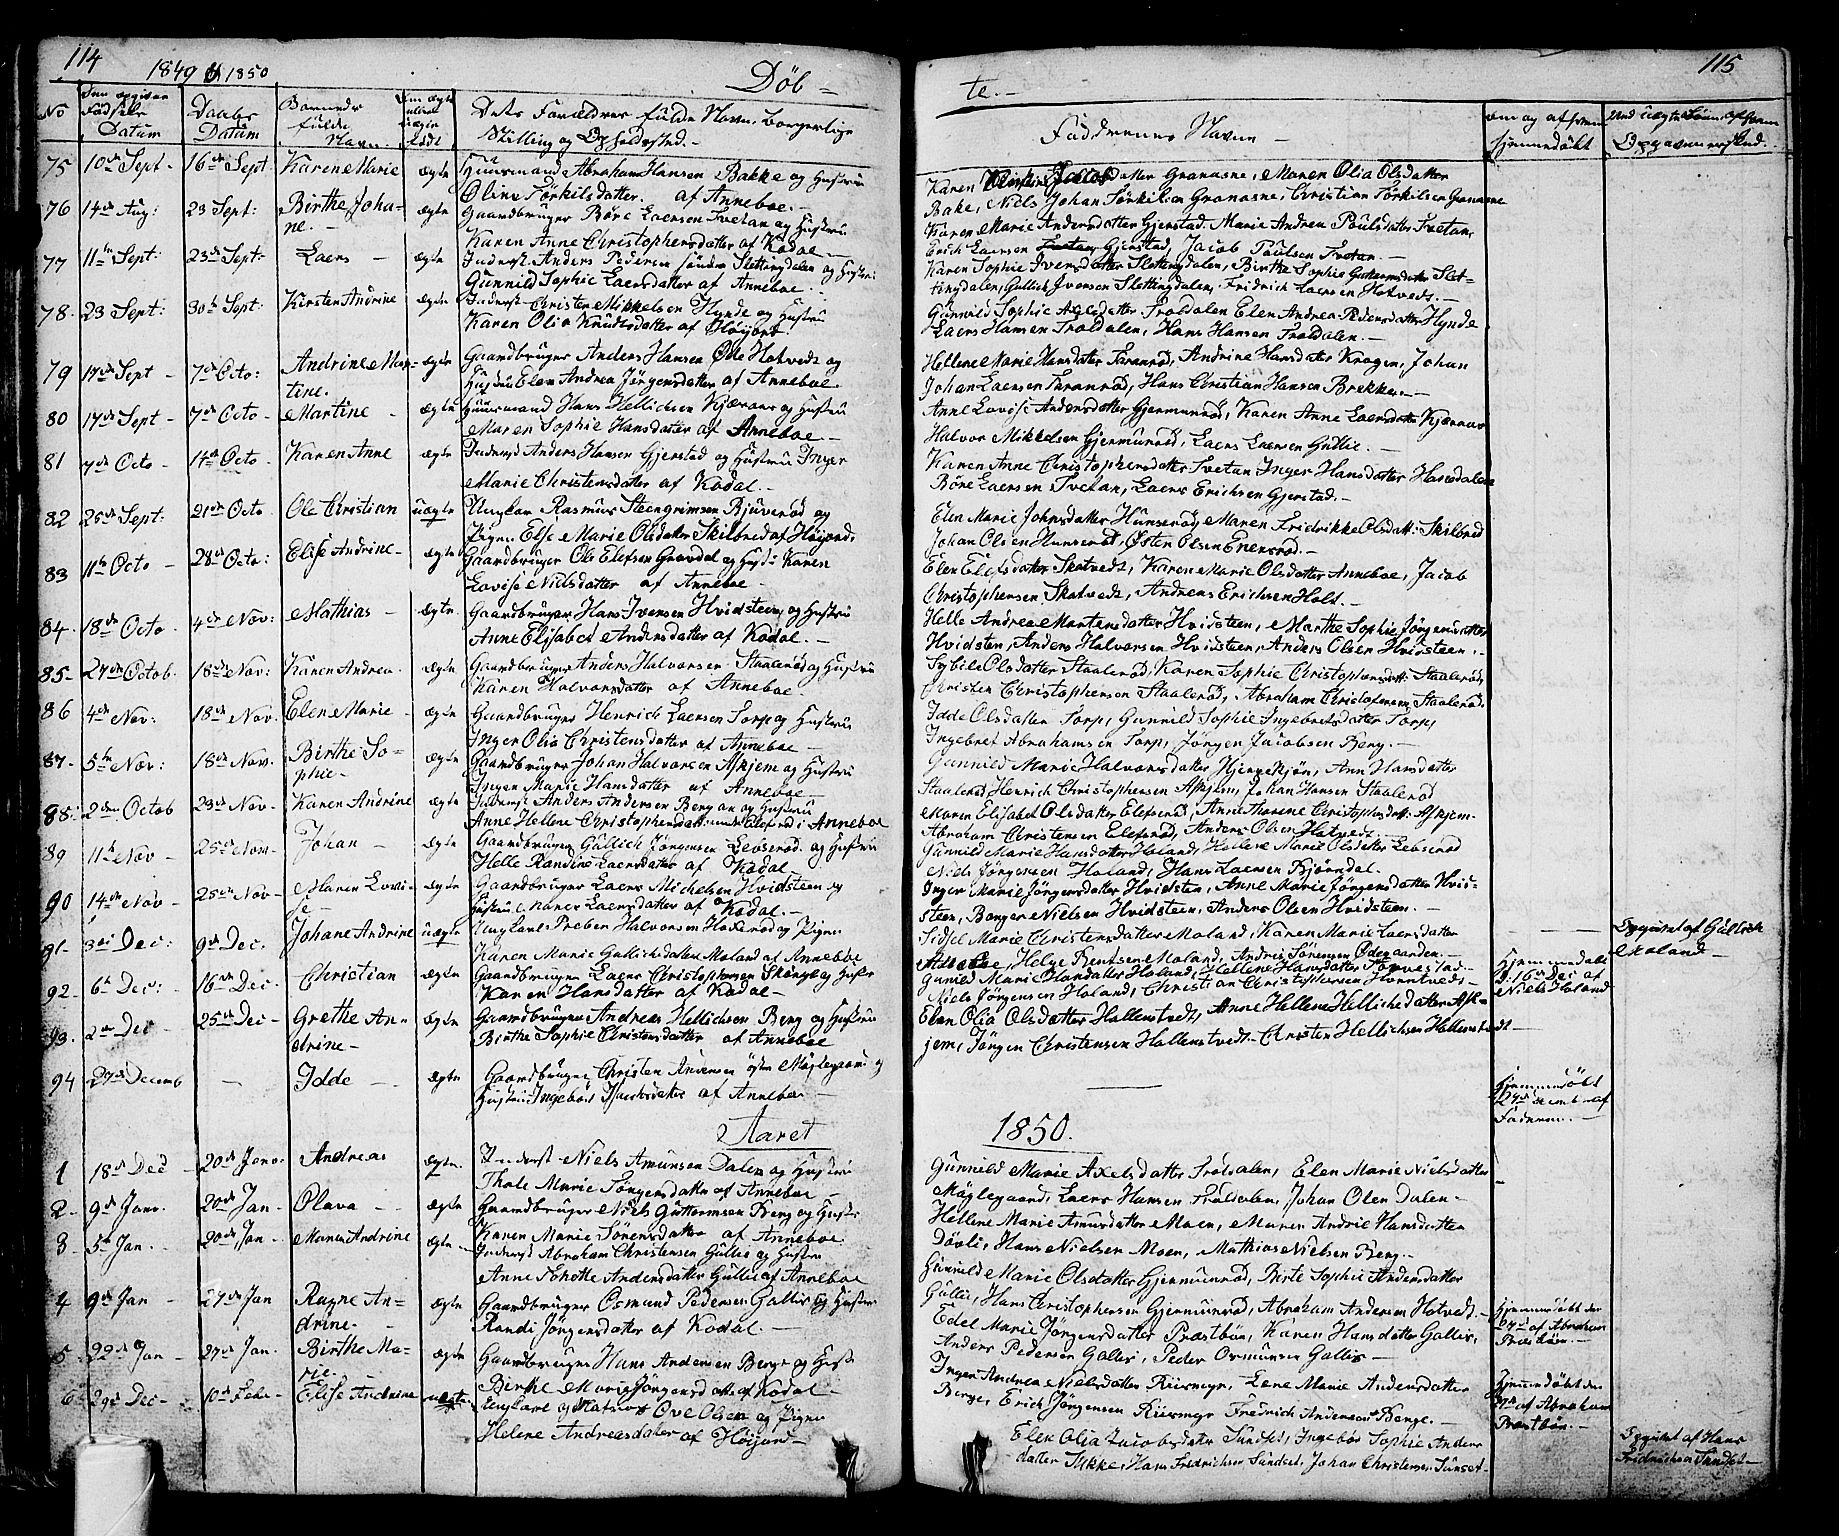 114
1849 & 1850
Döb-
No
Fødsels Datum
Daabs Datum
Barnedes fulde Navn
Dets Forældres fulde Navn, borgerlige
Stilling og Opholdssted.-
75 10de Sept - 16de Sept Karen Marie ægte Huusmand Abraham Hansen Bakke og Hustru
Oline Törkilsdatter. af Anneboe.-
76 14de Aug: 23 Sept: Birthe Joha-
ne.- ægte Gaardbruger Böre Laersen Tvetan og Hustru
Karen Anne Christophersdatter af Kodal-
77 11te Sept: 23de Sept: Laers - ægte Inderst Anders Pedersen söndre Slettingdalen og Hustru
Gunnild Sophie Laersdatter af Anneboe.-
78. 23 Sept: 30te Sept: Kirsten Andrine ægte Inderst Christen Mikkelsen Hynde og Hustru
Karen Olia Knudsdatter af Höijord
79 17de Sept - 7de Octo: Andrine Mar-
tine. ægte Gaardbruger Anders Hansen Öde Hotvedt og
Hustru Elen Andrea Jörgensdatter af Anneboe.
80 17de Sept - 7de Octo - Martine - ægte Huusmand Hans Hellichsen Kjæraas og Hustru
Maren Sophie Hansdatter af Anneboe -
81 7de Octo - 14de Octo Karen Anne ægte Inderst Anders Hansen Gjerstad og Hustru Inger
Marie Christensdatter af Kodal.-
82 26de Sept: 21de Octo Ole Christian uægte Ungkar Rasmus Steengrimsen Bjuverød og
Pigen Else Marie Olsdatter Skilbred af Höijord.
83 11te Octo - 28de Octo: Elise Andrine - ægte Gaardbruger Ole Elefsen Gravdal og Hust: Karen
Lovise Nielsdatter af Anneboe -
84. 18de Octo - 4de Nov: Mathias - ægte. Gaardbruger Hans Iversen Hvidsteen og Hustru
Anne Elisabet Andersdatter af Kodal.-
85- 27de Octob. 18de Nov: Karen Andrea. ægte Gaardbruger Anders Halvorsen Staalerød og Hustru
Karen Halvorsdatter af Anneboe -
86 4de Nov: 18de Nov. Elen Marie - ægte Gaardbruger Henrich Laersen Torp og Hustru
Inger Olia Christensdatter af Anneboe -
87- 5te Nov: 18de Nov. Birthe So-
phie - ægte Gaardbruger Johan Halvorsen Askjem og Hustru
Inger Marie Hansdatter af Anneboe -
88: 2den Octob 23de Nov - Karen Andrine ægte Inderst Anders Andersen Bergan og Hustru
Anne Hellene Christophersdatt: under Elefsrød i Anneboe
89 11te Nov - 25de Nov - Johan - ægte Gaardbruger Gullich Jörgensen Lebserød. og Hustru
Helle Randine Laersdatter af Kodal
90 14de Nov - 25de Nov - Maren Lovi-
se - ægte Gaardbruger Laers Michelsen Hvidsteen og
Hustru Maren Laersdatter af Kodal.-
91- 3die Dec: 9de Dec. Johane Andrine uægte Ungkarl Preben Halvorsen Hoderød og Pigen
Karen Marie Gullichsdatter Moland af Anneboe
92- 6te Dec: 16de Dec: Christian ægte Gaardbruger Laers Christophersen Skaugh og Hustr
Karen Hansdatter af Kodal -
93. 2den Dec 25de Dec - Grethe An-
drine - ægte Gaardbruger Andreas Hellichsen Berg og Hustru
Birthe Sophie Christensdatter af Anneboe
94 27de Decemb - Idde - ægte Gaardbruger Christen Andersen östre Möglegaard og
Hustru Ingebör Isaksdatter af Anneboe -
Aaret
1 18de Dec 20de Janr. Andreas ægte. Inderst - Niels Amunsen Dalen og Hustru
Thale Marie Jörgensdatter af Anneboe -
2- 9de Janr. 20de Jan - Olava - - ægte Gaardbruger Niels Guttormsen Berg og Hustr:
Karen Marie Sörensdatter af Anneboe
3 5te Jan - 20de Jan - Maren Andrine ægte - Inderst Abraham Christensen Gullie og Hustru
Anne Tohotte Andersdatter Gullie af Anneboe
4 9de Jan - 27de Jan Ragne An-
drine.- ægte Gaardbruger Osmund Pedersen Gallis og Hustru
Randi Jörgensdatter af Kodal.-
5 22de Jan - 27de Jan. Birthe Ma-
rie - ægte Gaardbruger Hans Andersen Berge og Hustr
Birthe Marie Jörgensdatter af Kodal -
6 29de Dec - 10de Febr - Elise Andrine uægte. Ungkarl og Matros Ove Olsen og Pigen
Helene Andreasdatter af Höijord -
115
te.-
Faddrenes Navne -
om og af hvem hjemmedöbt
Karen Jacobsdatter Granasne, Maren Olia Olsdatter
Bake, Niels Johan Törkilsen Granasne, Christian Törkilsen Granasne
Karen Marie Andersdatter Gjerstad. Marie Andrea Paulsdatter Tvetan,
Erich Laersen Gjerstad, Jacob Paulsen Tvetan -
Karen Sophie Iversdatter Slettingdalen, Birthe Sophie Guttormsdatter Slet-
tingdalen, Gullich Iversen Slettingdalen, Fridrich Laersen Hotvedt.-
Gunnild Sophie Axelsdatter Troldalen Elen Andrea Pedersdatter Hynde
Laers Hansen Troldalen, Hans Hansen Troldalen.-
Hellene Marie Hansdatter Furanrød, Andrine Hansdatter Krogen, Johan
Johan Laersen Furanrød, Hans Christian Hansen Brekke.-
Anne Lovise Andersdatter Gjermunrød, Karen Anne Laersdatter Kjæraas
Halvor Mikkelsen Gjermunrød, Laers Laersen Gullie.-
Karen Anne Christophersdatter Tvetan Inger Hansdatter Hanedalen
Böre Laersen Tvetan, Laers Erichsen Gjerstad.-
Elen Marie Johnsdatter Hunserød, Maren Fredrikke Olsdatt: Skilbred
Johan Olsen Hunserød, Østen Olsen Enersrød.-
Elen Elefsdatter Skatvedt, Karen Marie Olsdatter Anneboe, Jacob
Christophersen Skatvedt, Andreas Erichsen Holt.-
Helle Andrea Mortensdatter Hvidsteen, Marthe Sophie Jörgensdatter
Hvidsten, Anders Halvorsen Hvidsteen, Anders Olsen Hvidsteen.-
Sybile Olsdatter Staalerød, Karen Sophie Christophersdatt: Staalerød,
Christen Christophersen Staalerød, Abraham Christofersen Staalerød.
Idde Olsdatter Torp, Gunnild Sophie Ingebretsdatter Torp,
Ingebret Abrahamsen Torp, Jörgen Jacobsen Berg.-
Gunnild Marie Halvorsdatter Hjerpekjön, Ann Hansdatter
Staalerød Henrich Christophersen Askjem, Johan Hansen Staalerød
Maren Elisabet Olsdatter Elefsrød, Anne Maréne Christophersdatt: Askjem.
Abraham Christensen Elefsrød, Anders Olsen Hotvedt.-
Gunnild Marie Hansdatter Holand, Hellene Marie Olsdatter Lebserød
Niels Jörgensen Holand, Hans Laersen Björndal.
Inger Marie Jörgensdatter Hvidsten, Anne Marie Jörgensdatter Hvis-
steen, Borger Nielsen Hvidsteen, Anders Olsen Hvidsteen.-
Sidsel Marie Christensdatter Moland, Karen Marie Laersdatter
Helge Bentsen Moland, Andreas Sörensen Ødegaarden.-
Gunild Marie Hansdatter Holand, Hellene Hansdatter
Niels Jörgensen Holand, Christian Christophersen
Elen Olia Olsdatter Hallenstvedt, Anne Hellene Hellichsdatter Ask-
jem, Jörgen Christensen Hallenstvedt - Christen Hellichsen Hallenstvedt -
1850.
Gunnild Marie Axelsdatter Troldalen, Elen Marie Nielsdatter
Möglegaard, Laers Hansen Troldalen, Johan Olsen Dalen -
Hellene Marie Amunsdatter Moen, Maren Andrie Hansdatter
Dövli, Hans Nielsen Moen, Mathias Nielsen Berg.-
Gunnild Marie Olsdatter Gjermunrød, Birte Sophie Andersdatter
Gullie, Hans Christophersen Gjermunrød, Abraham Andersen Hotvedt -
Edel Marie Jörgensdatter Præstbön, Karen Hansdatter Gallis,
Anders Pedersen Gallis, Peder Osmunsen Gallis -
Inger Andrea Nielsdatter Riismyr, Lene Marie Andersdatter
Berge, Erich Jörgensen Riismyr Fredrich Andersen Berge.-
Elen Olia Jacobsdatter Sundset, Ingebör Sophie Anders
datter Ikke, Hans Fredrichsen Sundset, Johan Christensen Sunset -
Hjemmedöbt
d: 16de Dec af
Niels Holand
Hjemmedöbt
27de Decemb - af
Faderen.-
Hjemmedöbt den
27de af Abraham
Præstbön.-
Hjemmedöbt den
af Abraham
Præstbön.-
Opgivet af Gullich
Moland -
Opgivet af Hans
Fridrichsen Sundset -